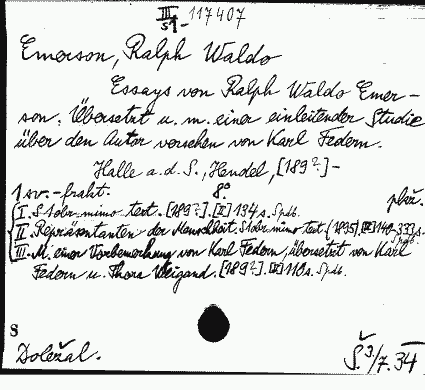 III 117407
S1-
Emerson, Ralph Waldo
Essays von Ralph Waldo Emer-
son. Übersetzt u. m. einer einleitender Studie
über den Autor versehen von Karl Federn.
Halle a.d.S., Hendel, [189?]-
1 sv.-frakt. 8° plář.
I. S 1 obr. mimo text. [189?]. [II] 134 s. Spdb.
II. Repräsentanten der Menschheit. S 1 obr. mimo text [1895]. 140-333 s. Spdb.
III. M. einer Vorbemerkung von Karl Federn, übersetzt von Karl
Federn u. Thora Weigand. [189?]. [II] 110 s. Spdb.
S
Doležal. Š. 3/7.34